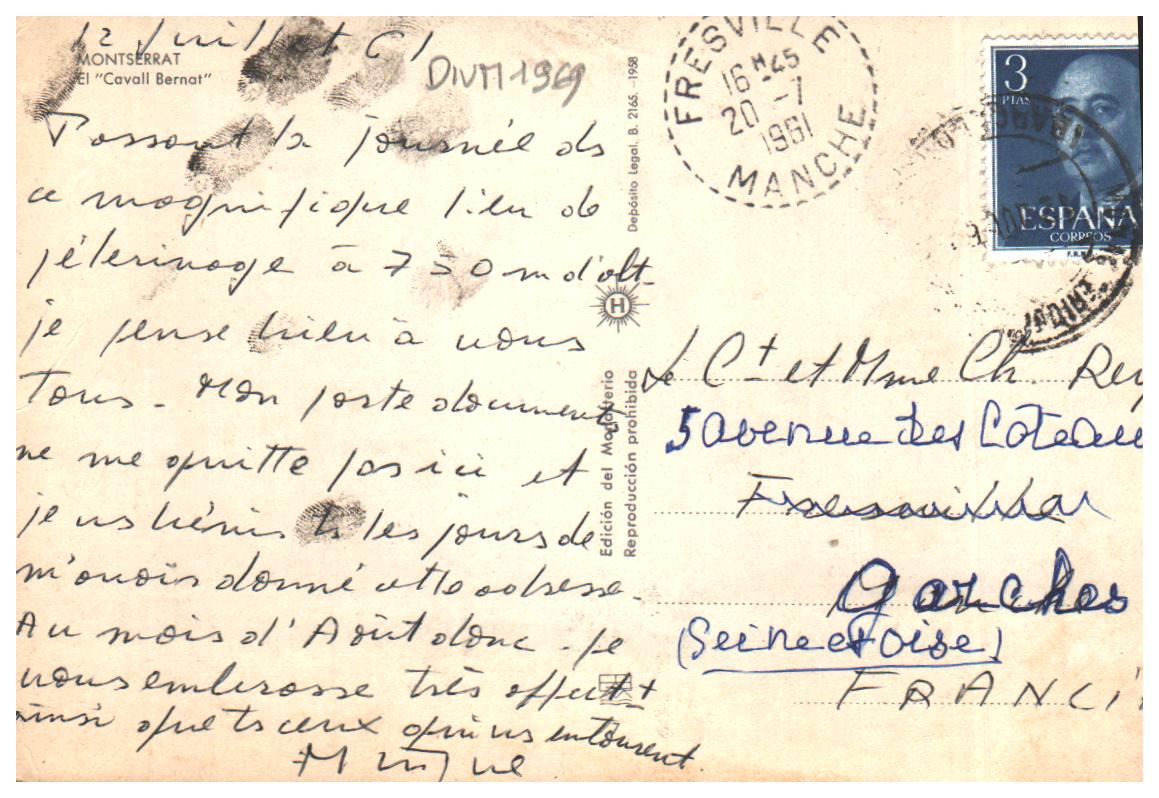 12 Juillet 61
MONTSERRAT
El "Cavall Bernat"
DIVM1969
Passant la journée ds
ce magnifique lieu de
pélerinage à 750 m d'alt.
je pense bien à vous
tous - Mon porte documents
ne me quitte pas ici et
je vs bénis ts les jours de
m'avoir donné cette adresse.
Au mois d'Août donc - Je
vous embrasse très affect t
ainsi que ts ceux qui vs entourent.
Depósito Legal. B. 2165. -1958
Edición del Monasterio
Reproducción prohibida
H
FRESVILLE
16 H 45
20 -7
1961
MANCHE
3
PTAS
ESPAÑA
CORREOS
Le Ct et Mme Ch. Rey
5 avenue des Coteau
Fresville
Garches
(Seine et Oise)
FRANC